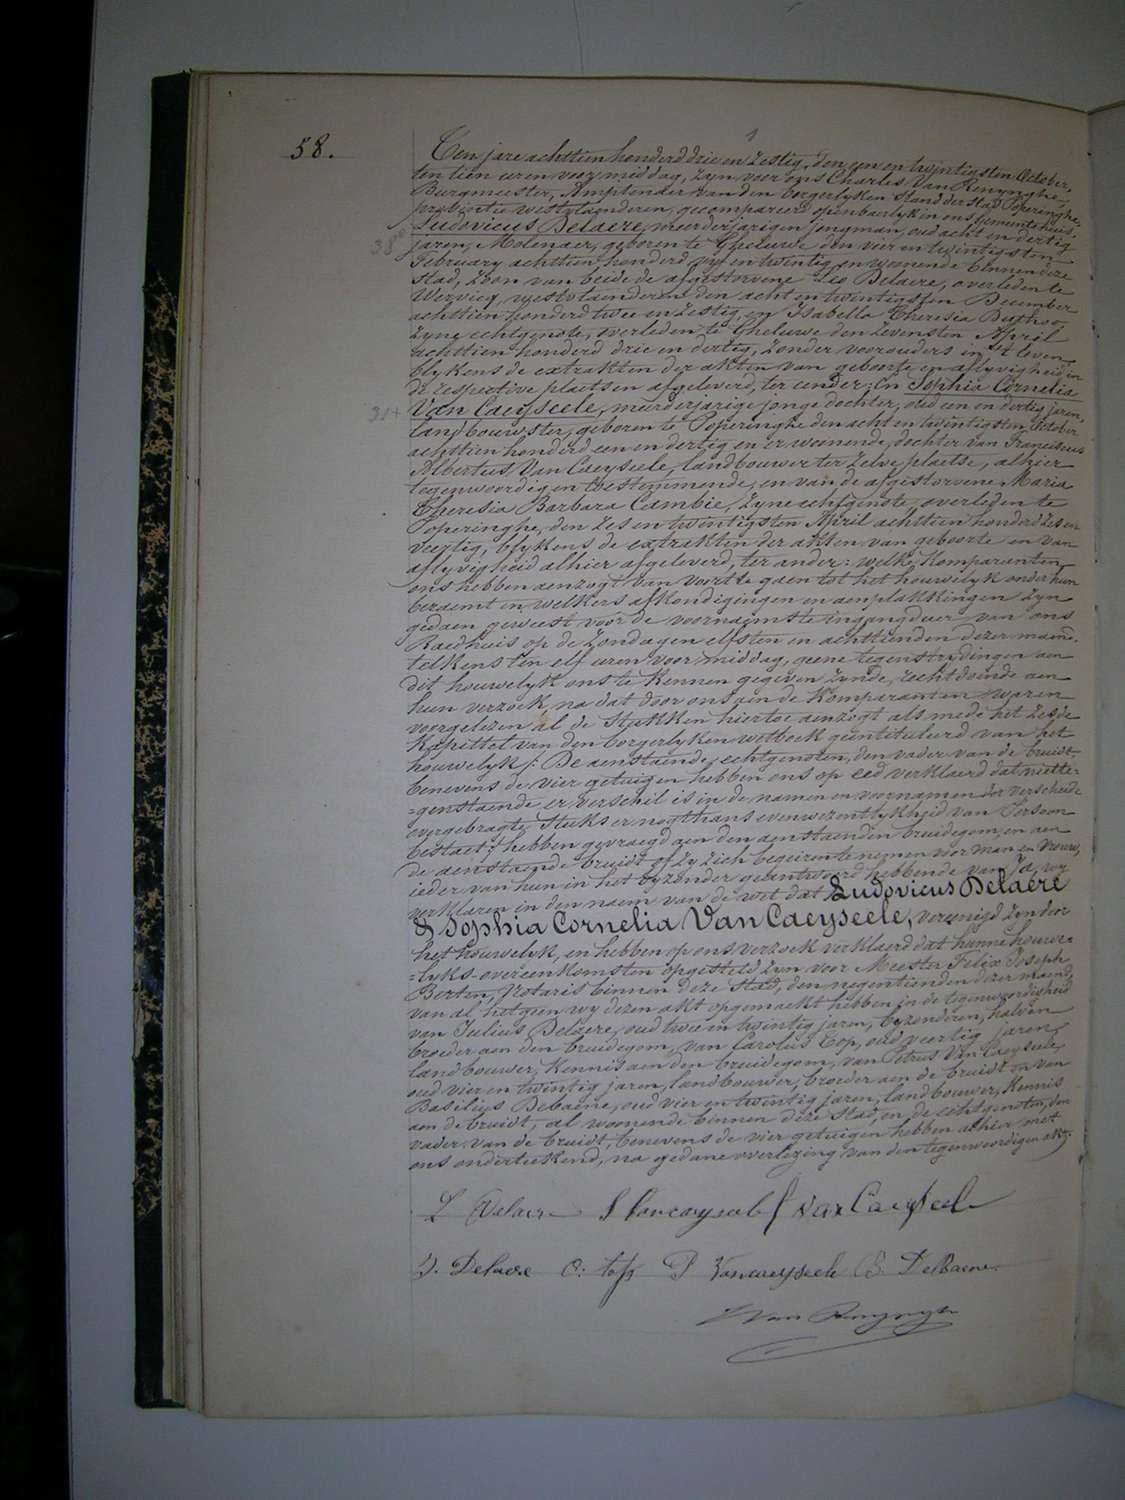 58.
Ten jare achttien honderd drie en zestig, den een en twintigsten October,
ten tien uren voor middag, zyn voor ons Charles Van Renynghe,
Burgmeester, Amptenaer van den borgerlyken stand der Stad Poperinghe,
provintie Westvlaenderen, gecompareerd openbaerlyk in ons Gemeentehuis,
Ludovicus Delaere, meerderjarigen jongman, oud acht en dertig
38
jaren, Molenaer, geboren te Gheluwe den vier en twintigsten
February achttien honderd vyf en twintig, en woonende binnen deze
Stad, zoon van beide de afgestorvene Leo Delaere, overleden te
Wervicq, Westvlaenderen den acht en twintigsten December
achttien honderd twee en zestig, en Isabella Theresia
zyne echtgenote, overleden te Gheluwe den zevensten April
achttien honderd drie en dertig, zonder voorouders in 't leven,
blykens de extrakten der akten van geboorte en aflyvigheid in
de respective plaetsen afgeleverd, ter eender; en Sophia Cornelia
31+
Van Caeyseele, meerderjarige jonge dochter, oud een en dertig jaren,
landbouwster, geboren te Poperinghe den acht en twintigsten October
achttien honderd een en dertig en er woonende, dochter van Franciscus
Albertus Van Caeyseele, landbouwer ter zelve plaetse, alhier
tegenwoordig en toestemmende, en van de afgestorvene Maria
Theresia Barbara Cambie, zyne echtgenote, overleden te
Poperinghe, den zes en twintigsten April achttien honderd zes en
veertig, blykens de extrakten der akten van geboorte en van
aflyvigheid alhier afgeleverd, ter ander: welke Komparanten
ons hebben aenzogt van voort te gaen tot het houwelyk onder hun
beraemt en welkers afkondigingen en aenplakkingen zyn
gedaen geweest voor de voornaemste ingangdeur van ons
Raedhuis op de zondagen elfsten en achttienden dezer maend
telkens ten elf uren voor middag, geene tegenstrydingen aen
dit houwelyk ons te kennen gegeven zynde, recht doende aen
hun verzoek, na dat door ons aen de Komparanten waren
voorgelezen al de Stukken hiertoe aenzogt als mede het zesde
Kapittel van den borgerlyken wetboek geïntituleerd van het
houwelyk /: De aenstaende echtgenoten, den vader van de bruidt
benevens de vier getuigen hebben ons op eed verklaerd dat niette-
=genstaende er verschil is in de namen en voornamen der verscheide
overgebragte Stuks er nogthans evenwezentlykheid van Persoon
bestaet :/ hebben gevraegd aen den aenstaenden bruidegom, en aen
de aenstaende bruidt of zy zich begeiren te nemen voor man en vrouw,
ieder van hun in het byzonder geantwoord hebbende van Ja, wy
verklaren in den naem van de wet dat Ludovicus Delaere
& Sophia Cornelia Van Caeyseele, vereenigd zyn door
het houwelyk, en hebben op ons verzoek verklaerd dat hunne houwe-
=lyks-overeenkomsten opgesteld zyn voor Meester Felix Joseph
Berten, Notaris binnen deze Stad, den negentienden dezer maend,
van al hetgeen wy dezen akt opgemaekt hebben in de tegenwoordigheid
van Julius Delaere, oud twee en twintig jaren, byzonderen, halven
broeder aen den bruidegom, van Carolus Top, oud veertig jaren,
landbouwer, kennis aen den bruidegom, van Petrus Van Caeyseele,
oud vier en twintig jaren, landbouwer, broeder aen de bruidt en van
Basilius Debaene, oud vier en twintig jaren, landbouwer, Kennis
aen de bruidt, al woonende binnen deze Stad, en de echtgenoten, den
vader van de bruidt, benevens de vier getuigen hebben alhier met
ons onderteekend, na gedane overlezing van den tegenwoordigen akt.
L Delaere S Vancayseele f van Caeyseele
J. Delaere C: top P Vancaeyseele B. DeBaene.
Van Renynghe